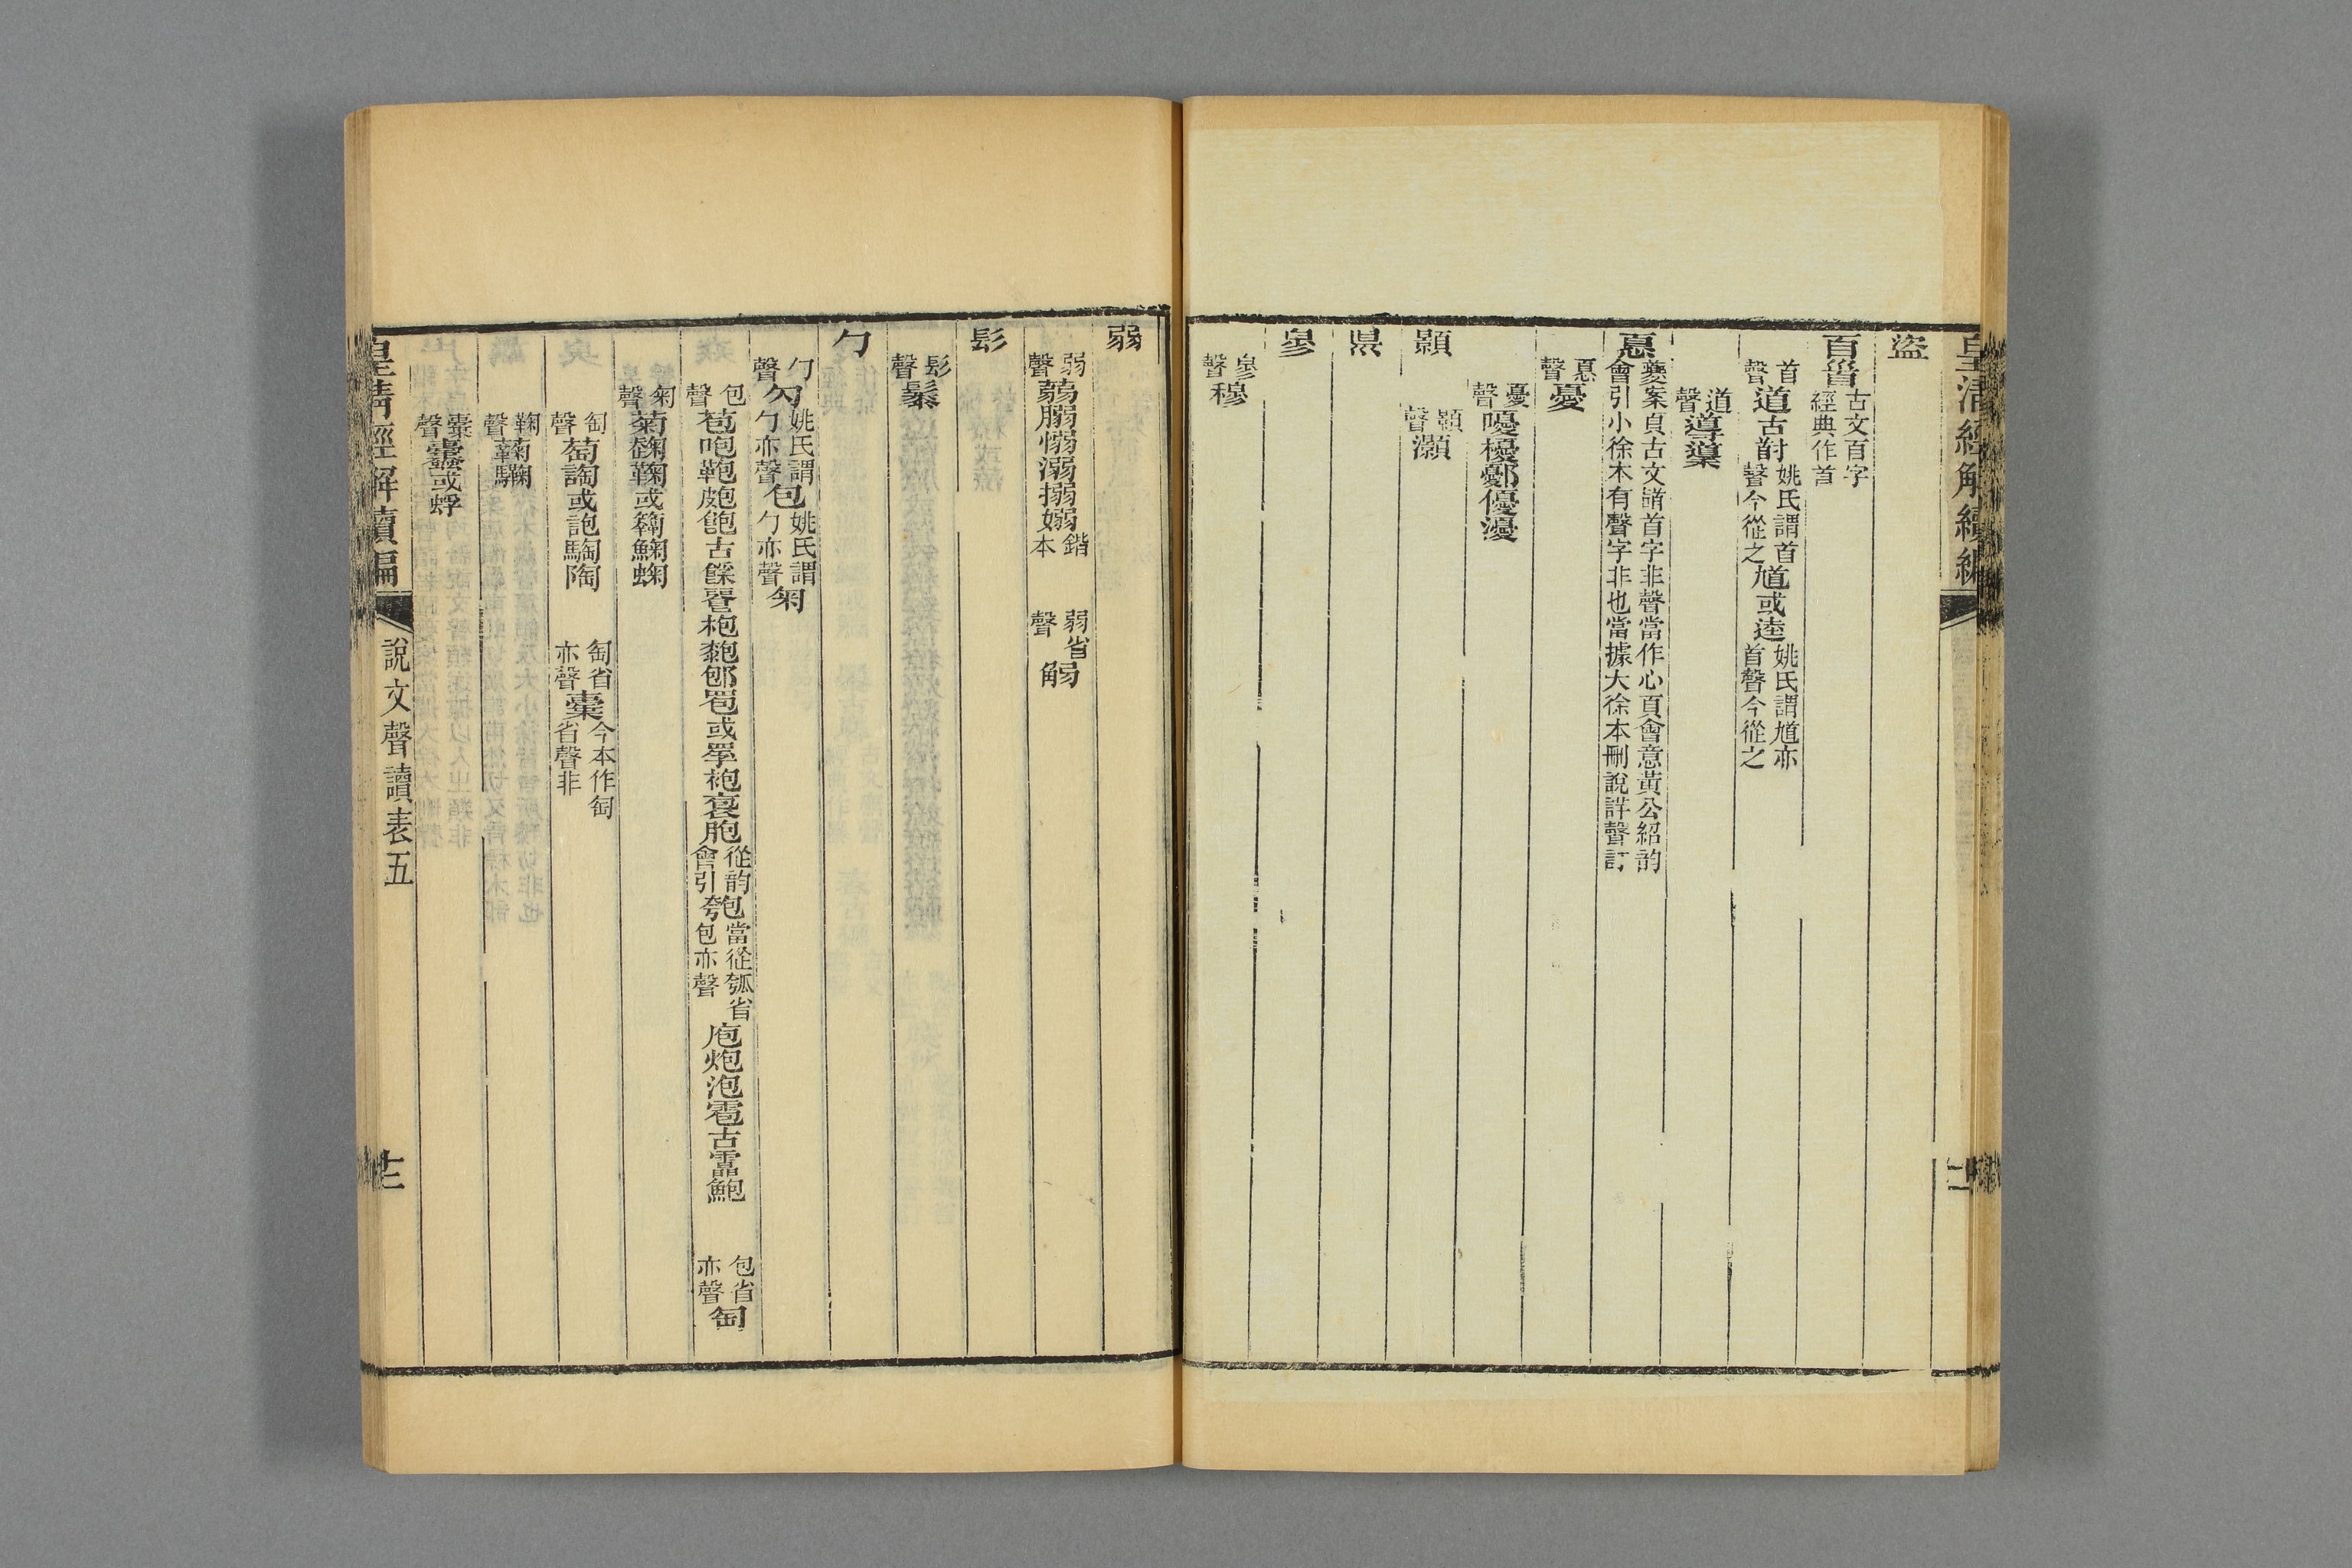 皇清經解續編
盜
𦣻𩠐古文百字經典作首
首聲道古𡬹姚氏謂首聲今從之馗或逵姚氏謂馗亦首聲今從之
道聲導䆃
𢝊夔案𦣻古文𩠐首字非聲當作心頁會意黃公紹韵會引小徐本有聲字非也當據大徐本刪說詳聲訂
𢝊聲憂
憂聲嚘櫌鄾優瀀
顥
顥聲灝
㬎
㣎
㣎聲穆
弱
弱聲蒻腸愵溺搦嫋鍇本 弱省聲觸
髟
髟聲鬏
勹
勹聲勽姚氏謂勹亦聲包姚氏謂勹亦聲匊
包聲苞咆鞄皰飽古𩜿䈥枹麭郒雹或罦袍裒胞從韵會引匏包當從瓠省包亦聲庖炮泡雹古𩅟鮑 包省亦聲匋
匊聲菊䱡鞠或𥷚鮈蜠
匋聲萄詾或詢騊陶 匋省亦聲櫜今本作匋省聲非
鞠聲蘜驧
櫜聲蠹或蜉
皇清經解續編
說文聲讀表五